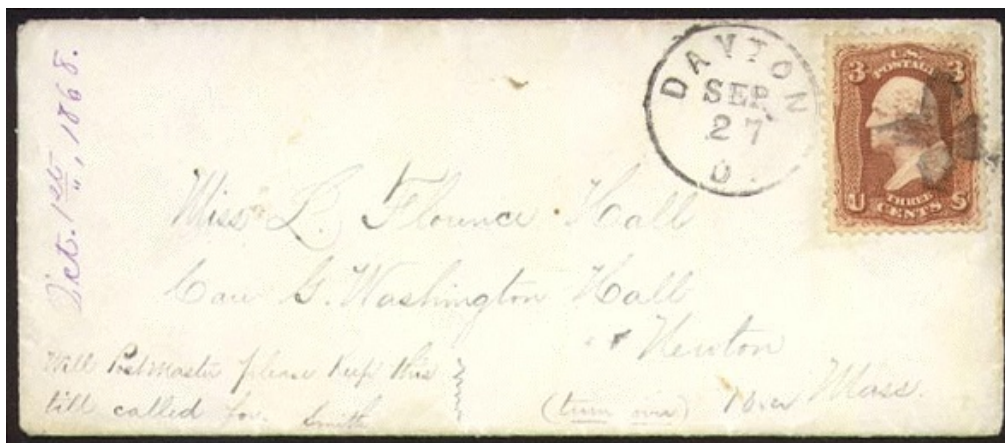 Oct. 1st, 1868.
DAYTON
SEP
27
O.
3 U.S. 3
POSTAGE
THREE
U CENTS S
Miss L. Florence Hall
Care G. Washington Hall
Newton
Mass.
Will Postmaster please keep this
till called for. Smith
(turn over)